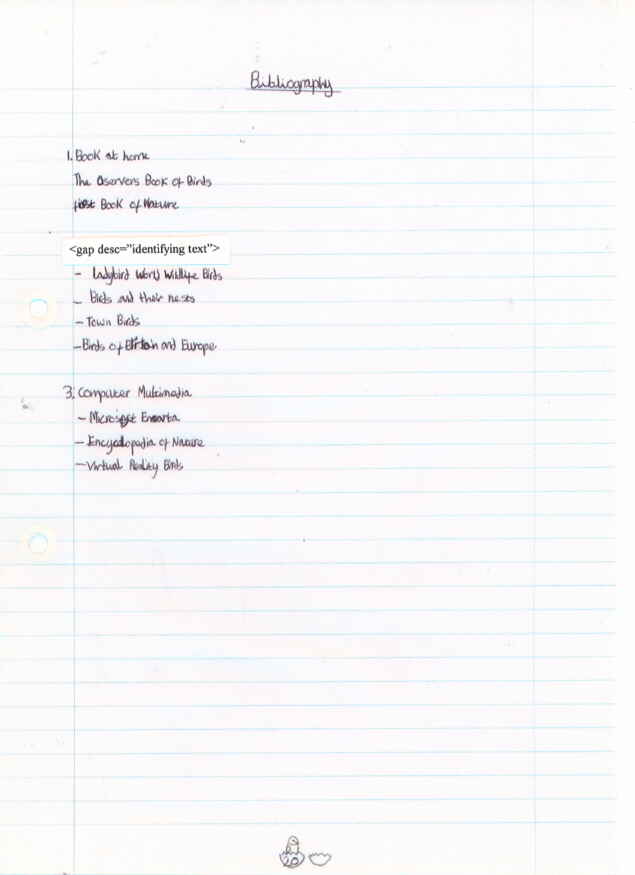 Bibliography
1. Book at home
The Oservers Book of Birds
first Book of Nature
<gap desc="identifying text">
- Ladybird World Wildlife Birds
- Birds and their nests
- Town Birds
- Birds of Britain and Europe.
3. Computer Multimedia
- Microsoft Encarta
- Encyclopedia of Nature
- Virtual Reality Birds
20